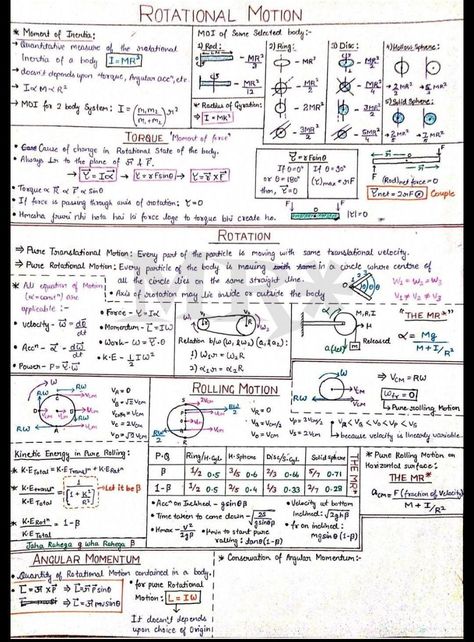 ROTATIONAL MOTION
* Moment of Inertia:
→ Quantitative measure of the rotational
Inertia of a body I = MR²
→ doesn't depends upon torque, Angular accⁿ, etc
→ I ∝ M ∝ R²
→ MOI for 2 body System: I = (m₁m₂/m₁+m₂) r²
MOI of Some Selected body:-
1) Rod:
MR²/3
MR²/12
* Radius of Gyration:
I = MK²
2) Ring:
MR²
MR²/2
2MR²
3MR²/2
3) Disc:
MR²/2
MR²/4
3MR²/2
5MR²/4
4) Hollow Sphere:
2/3 MR² 5/3 MR²
5) Solid Sphere:
2/5 MR² 7/5 MR²
TORQUE 'Moment of force'
• Cause of change in Rotational State of the body.
• Always Ʇr to the plane of r & F.
→ τ = Iα → τ = rFsinθ → τ = r × F
• Torque ∝ R ∝ F ∝ sinθ
• If force is passing through axis of rotation: τ = 0
• Hmesha jruri nhi hota hai ki force lage to torque bhi create ho.
τ = rFsinθ
If θ = 0° or θ = 180° then, τ = 0
If θ = 90° (τ)max = rF
(Rod) net force = 0
τnet = 2rF Couple
|τ| = 0
ROTATION
⇒ Pure Translational Motion: Every part of the particle is moving with same translational velocity.
⇒ Pure Rotational Motion: Every particle of the body is moving in a circle where centre of
all the circle lies on the same straight line.
• Axis of rotation may lie inside or outside the body
W₁ = W₂ = W₃
V₁ ≠ V₂ ≠ V₃
* All equation of Motion
(α = constⁿ) are
applicable :-
• Velocity - w = dθ/dt
• Accⁿ - α = dw/dt
• Power - P = τ·w
• Force - τ = Iα
• Momentum - L = Iw
• Work - W = τ·θ
• K·E - 1/2 Iw²
Relation b/w (w₁ & w₂) (α₁ & α₂):
1) w₁r = w₂R
2) α₁r = α₂R
M, R, I
M
a(↓)
Released
"THE MR*"
α = Mg / M + I/R²
ROLLING MOTION
VA = 0
VB = √2 VCM
VC = 2VCM
VD = √2 VCM
VR = 0
VS = 2VCM
⇒ VCM = RW
Wfr = 0
→ Pure rolling Motion
because velocity is linearly variable.
Kinetic Energy in Pure Rolling:
K·E Total = K·E Transⁿ + K·E Rotⁿ
* K·E Transⁿ / K·E Total = 1 / 1 + K²/R² → Let it be β
* K·E Rotⁿ / K·E Total = 1-β
Jaha Rahega g wha Rahega β
P·Q Ring/H·Cyl H·Sphere Disc/S·Cyl Solid sphere
β 1/2 0.5 3/5 0.6 2/3 0.66 5/7 0.71
1-β 1/2 0.5 2/5 0.4 1/3 0.33 2/7 0.28
THE MR*
• Accⁿ on Inclined - gsinθβ
• Time taken to come down - √2S/gsinθβ
• Hmax - V²/2gβ
• μmin to start pure
rolling: tanθ(1-β)
• Velocity at bottom
inclined: √2ghβ
• fr on inclined:
mgsinθ(1-β)
* Pure Rolling Motion on
Horizontal surface:
THE MR*
aCM = F (fraction of velocity) / M + I/R²
ANGULAR MOMENTUM
• Quantity of Rotational Motion contained in a body.
* L = r × P ⇒ L = rPsinθ
⇒ L = rmvsinθ
• for pure Rotational
Motion: L = IW
It doesn't depends
upon choice of Origin
* Conservation of Angular Momentum:-